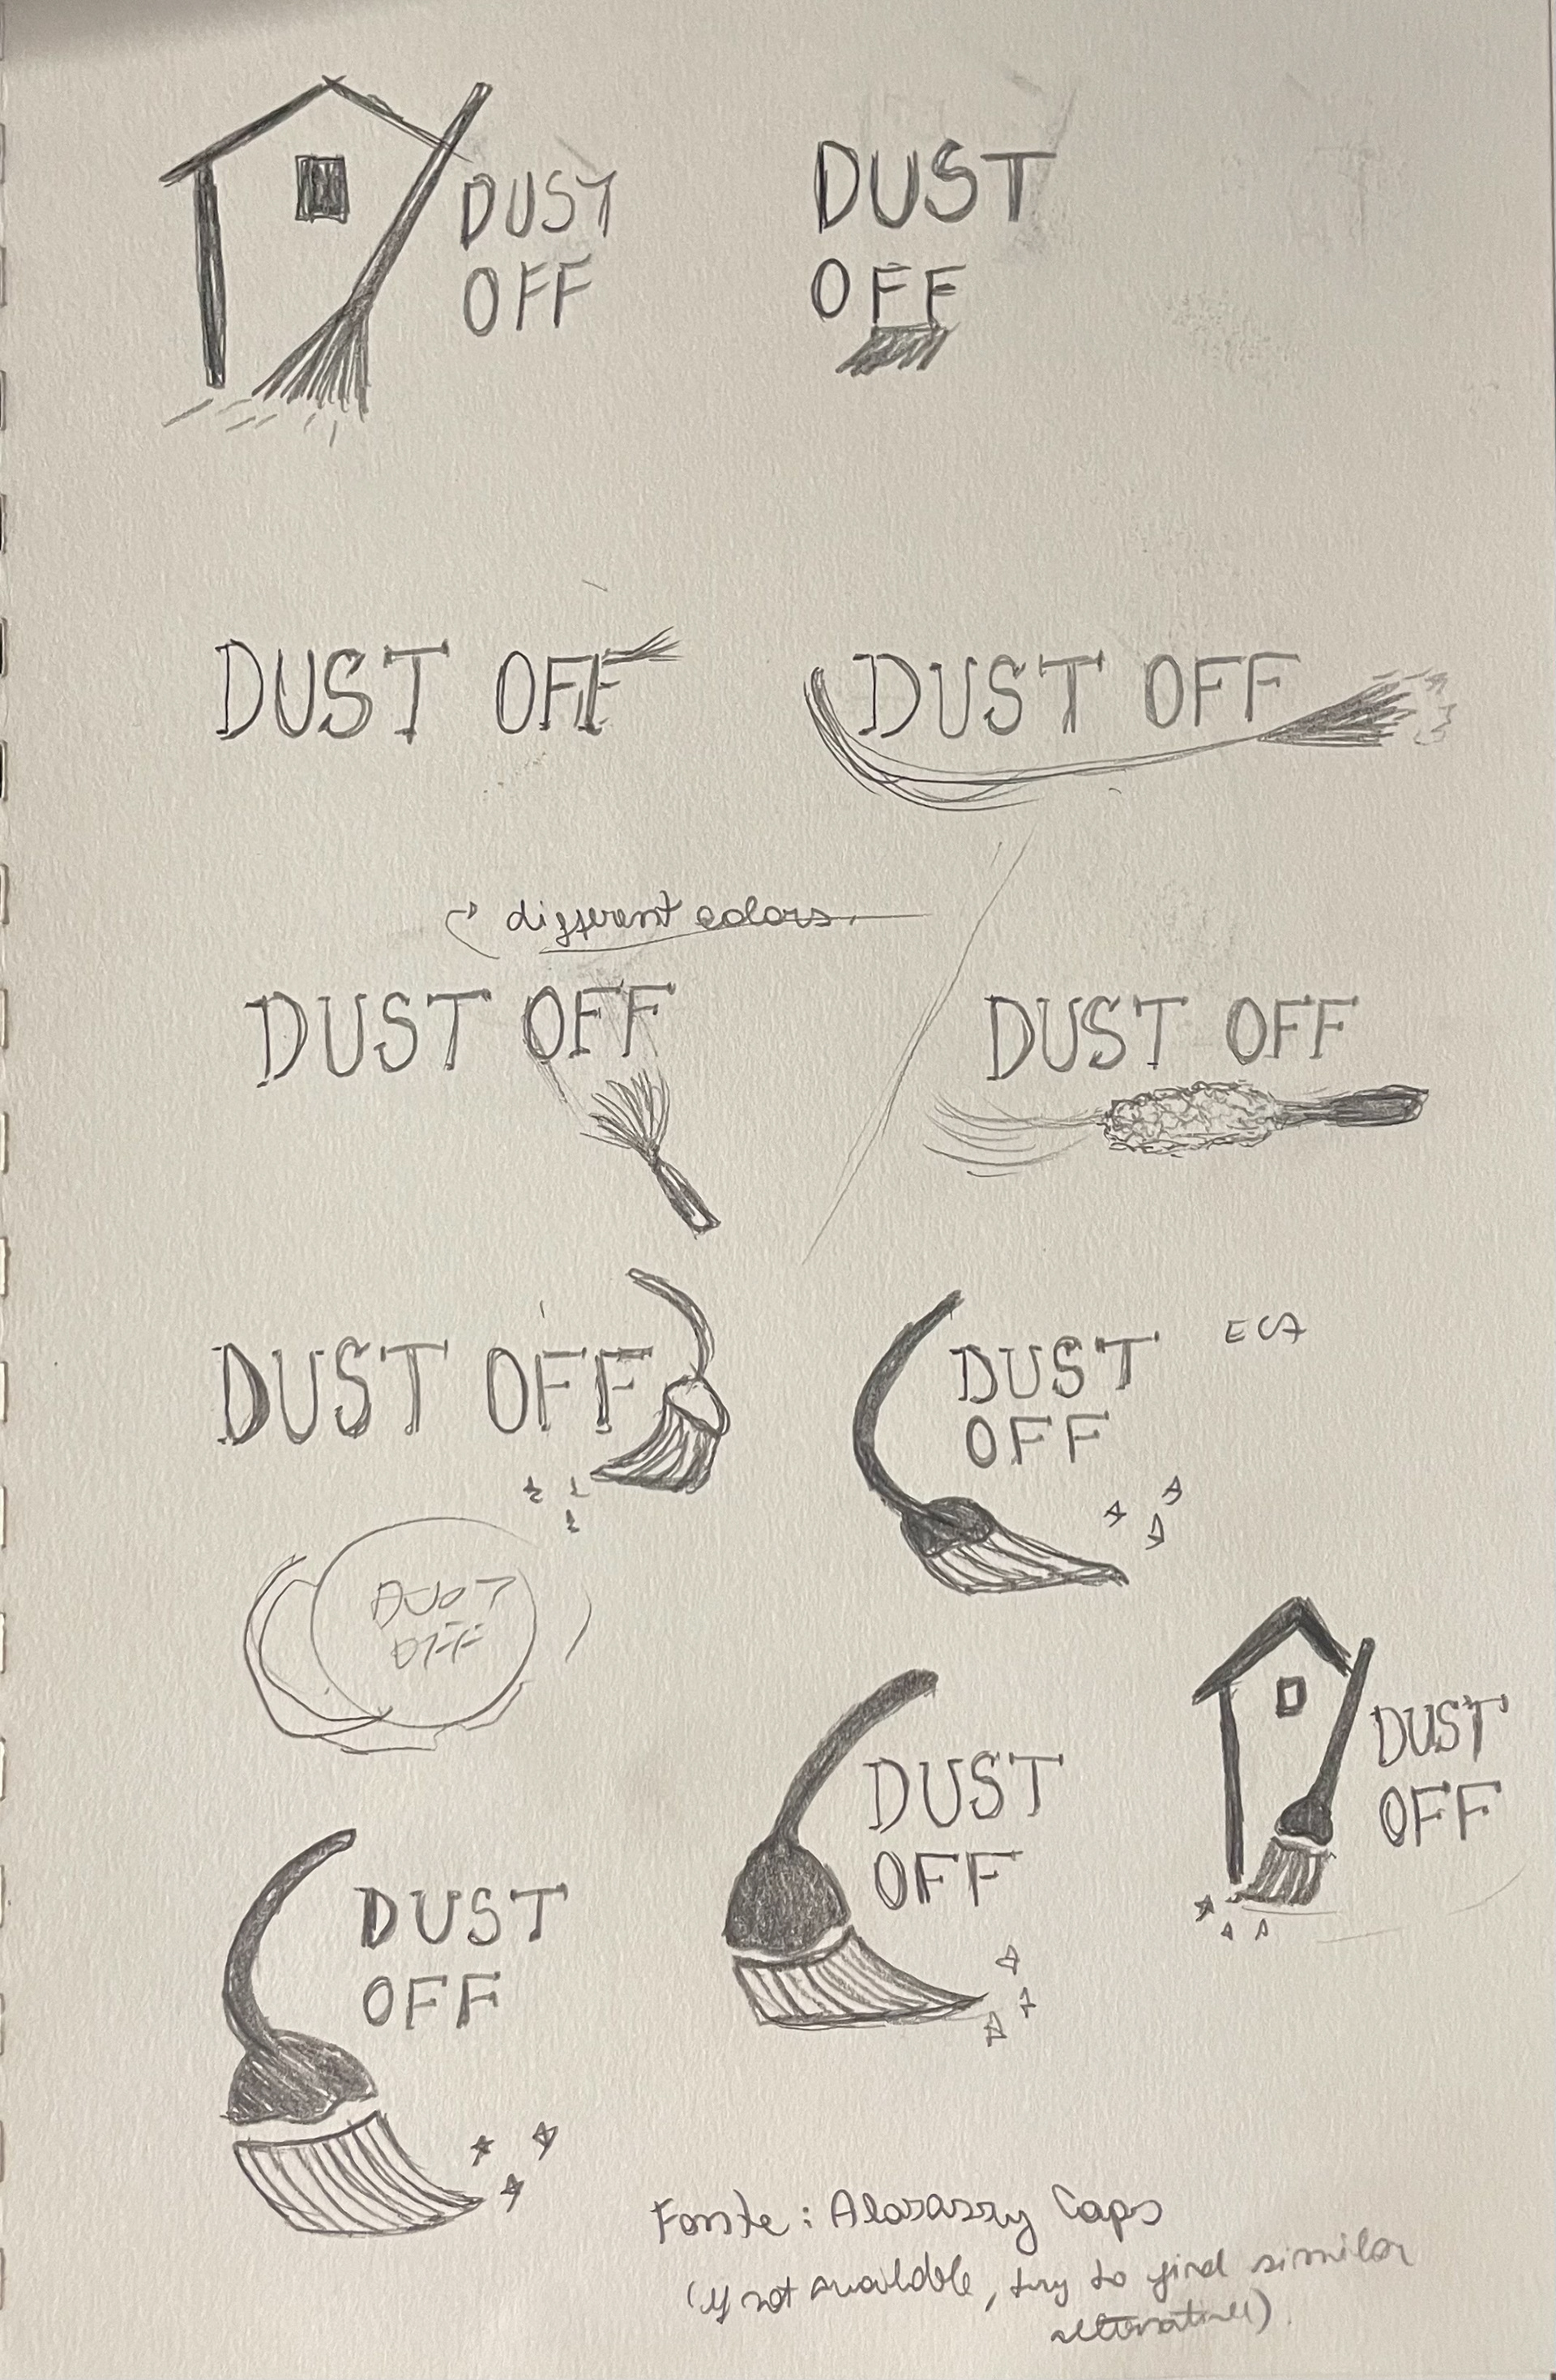 DUST
OFF
DUST
OFF
DUST OFF
DUST OFF
different colors.
DUST OFF
DUST OFF
DUST OFF
DUST
OFF
DUST
OFF
DUST
OFF
DUST
OFF
DUST
OFF
Fonte: Caps
(if not available, try to find similar
alternative).